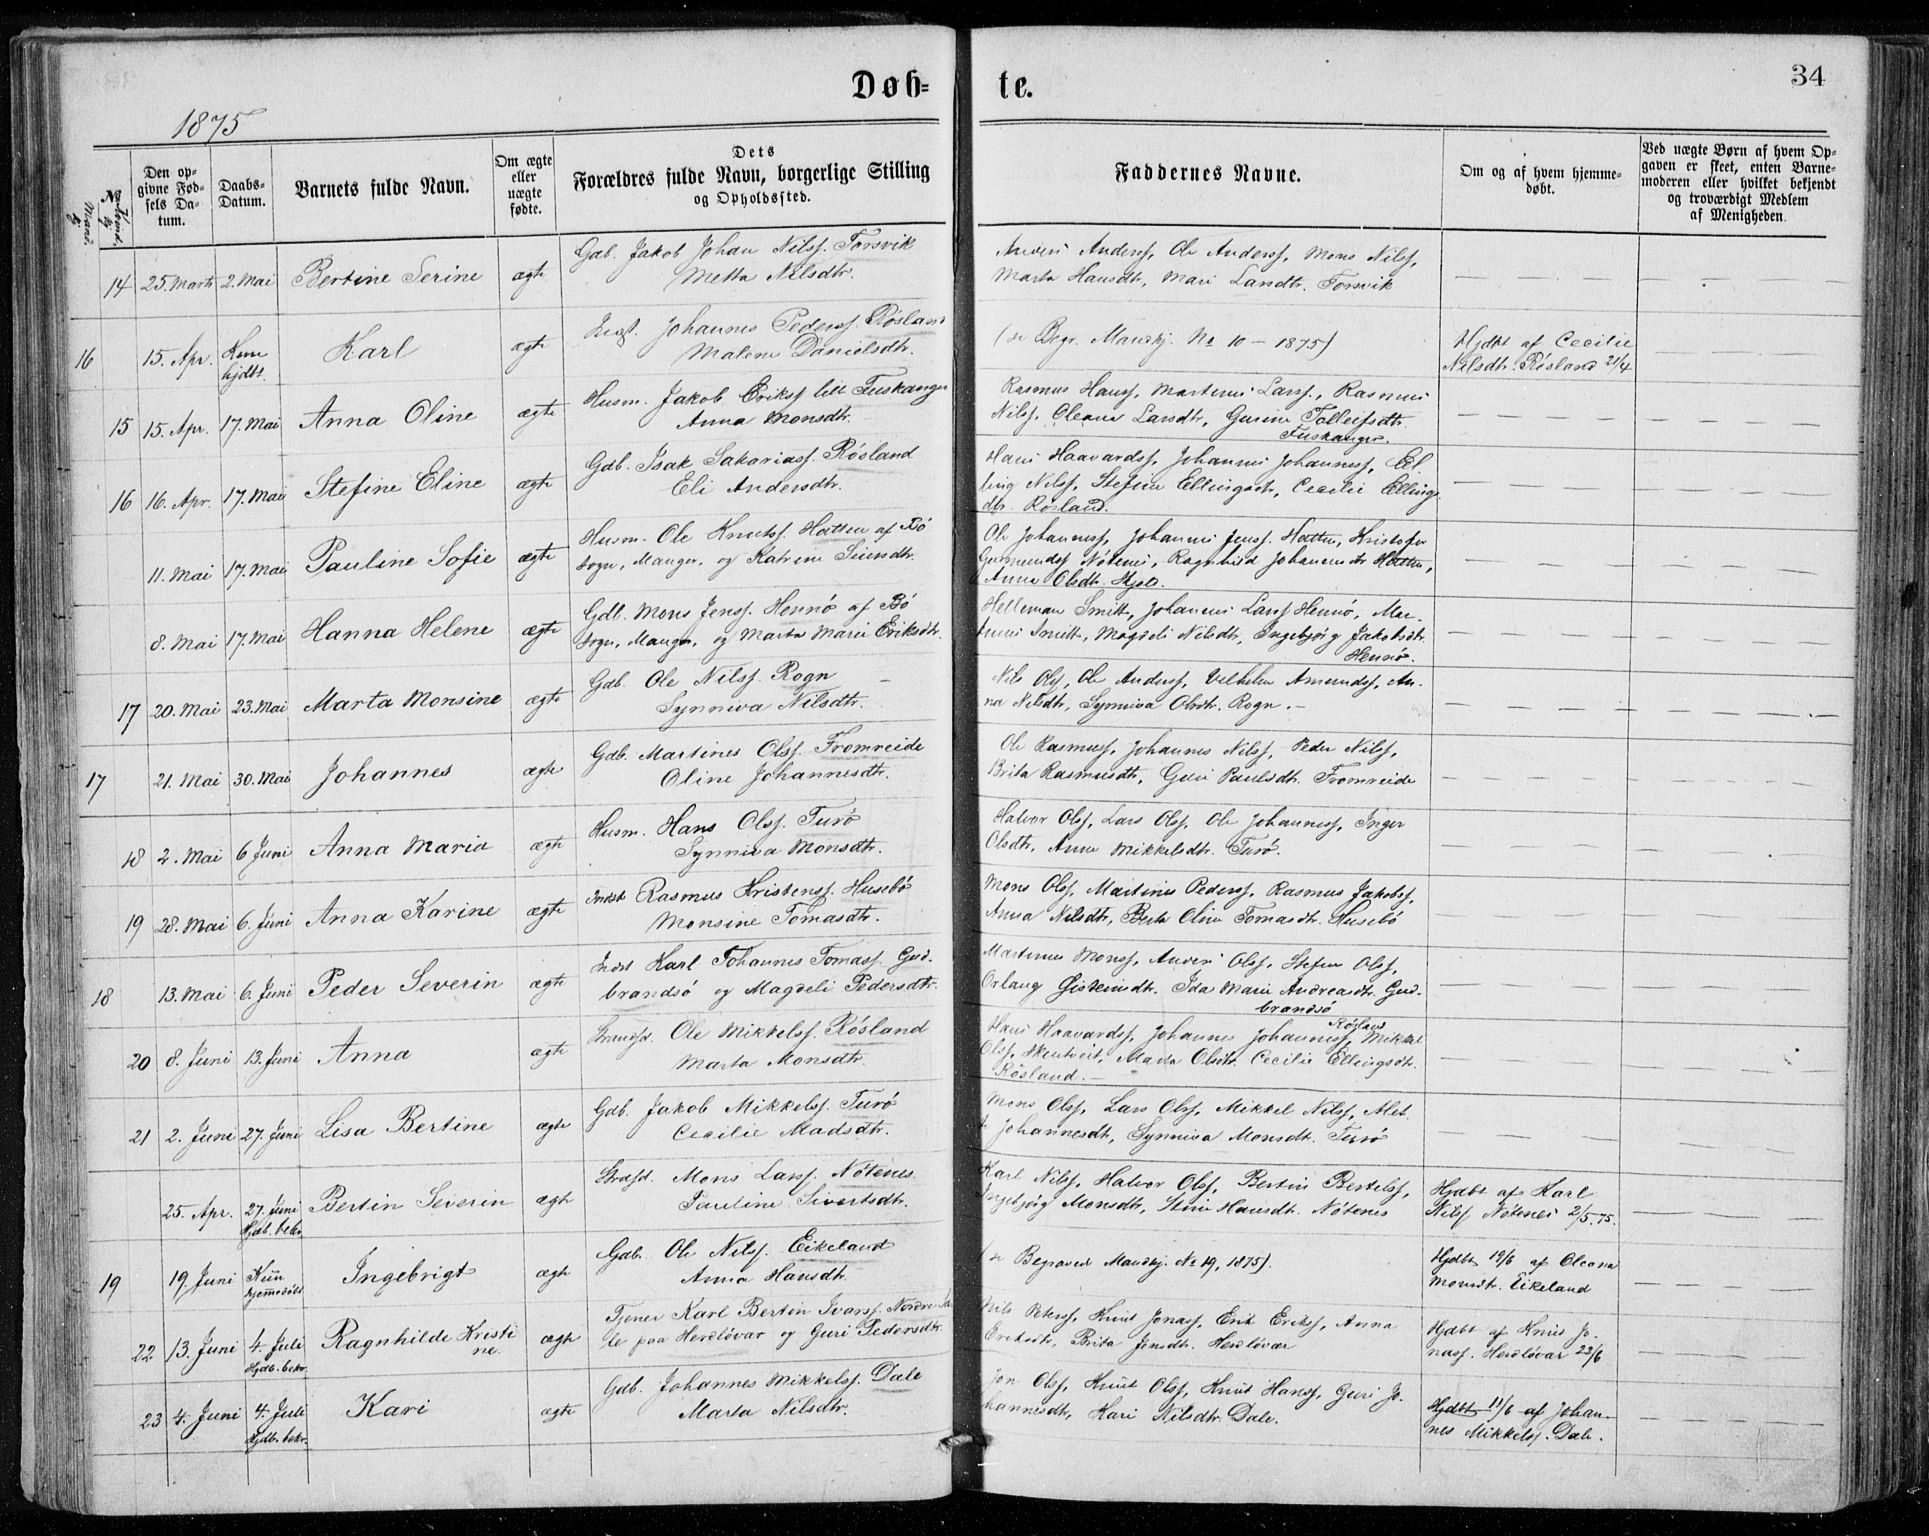 Døb-
te.
34
1875
Mandkj
No Kvindekj
Den op-
givne Fød-
sels Da-
tum.
Daabs-
Datum.
Barnets fulde Navn.
Om ægte
eller
uægte
fødte.
Dets
Forældres fulde Navn, borgerlige Stilling
og Opholdssted.
Faddernes Navne.
Om og af hvem hjemme-
døbt.
Ved uægte Børn af hvem Op-
gaven er skeet, enten Barne-
moderen eller hvilket bekjendt
og troværdigt Medlem
af Menigheden.
14 25. Marts 2. Mai Bertine Serine ægte
Gdb. Jakob Johan Nilss. Torsvik
Metta Nilsdtr.
Anders Anderss, Ole Anderss, Mons Nilss,
Marta Hansdtr, Mari Landtr. Torsvik
16 15. Apr. Kun
hjdbt Karl ægte
Johannes Pederss. Røsland
Malene Danielsdtr.
(se Begr. Mandkj. No 10 - 1875)
Hjdbt af Cecilie
Nilsdtr. Røsland 21/4
15 15. Apr. 17. Mai Anna Oline ægte
Husm. Jakob Erikss lill Tuskanger
Anna Monsdtr.
Rasmus Hanss, Martenus Larss, Rasmus
Nilss, Oleana Larsdtr, Gurine Tolleifsdtr.
Tuskanger.
16 16. Apr. 17. Mai Stefine Eline ægte
Gdb. Isak Sakariass. Røsland
Eli Andersdtr.
Hans Haavardss, Johannes Johanness, El-
ling Nilss, Stefine Ellingsdtr, Cecilie Ellings-
dtr. Røsland.
11. Mai 17. Mai Pauline Sofie ægte
Husm. Ole Knutss. Hatten af Bø
Sogn, Manger, og Katrine Simsdtr.
Ole Johanness, Johannes Jenss. Hatten, Kristofer
Gurmundss Nøtenes, Ragnhild Johannesdtr Hatten,
Anna Olsdtr. Hjelt.
8. Mai 17. Mai Hanna Helene ægte
Gdb. Mons Jenss. Hennø af Bø
Sogn, Manger, og Marta Marie Eriksdtr.
Helleman Smitt, Johannes Larss Hennø, Mar-
Smitt, Magdeli Nilsdtr, Ingebjørg Jakobsdtr.
Hennø.
17 20. Mai 23. Mai Marta Monsine ægte
Gdb. Ole Nilss. Rogn
Synniva Nilsdtr.
Nils Olss, Ole Anderss, Vilhelm Amundss, An-
na Nilsdtr, Synniva Olsdtr. Rogn.
17 21. Mai 30. Mai Johannes ægte
Gdb. Martines Olss. Fromreide
Oline Johannesdtr.
Ole Rasmuss, Johannes Nilss, Peder Nilss,
Brita Rasmusdtr, Guri Paulsdtr. Fromreide
18 2. Mai 6 Juni Anna Maria ægte
Husm. Hans Olss. Turø
Synniva Monsdtr.
Halvor Olss, Lars Olss, Ole Johanness, Inger
Olsdtr, Anna Mikkelsdtr. Turø.
19 28. Mai 6. Juni Anna Karine ægte
Indst Rasmus Kristenss. Husebø
Monsine Tomasdtr.
Mons Olss, Martinus Pederss, Rasmus Jakobss,
Anna Nilsdtr, Berta Oline Tomasdtr. Husebø
18 13. Mai 6. Juni Peder Severin ægte
Indst Karl Johannes Tomass. Gud-
brandsø og Magdeli Pedersdtr.
Martenus Monss, Anders Olss, Stefen Olss,
Orlaug Gisteinsdtr. Ida Marie Andreasdtr. Gud-
brandsø
20 8. Juni 13. Juni Anna ægte
Strandsd. Ole Mikkelss. Røsland
Marta Monsdtr.
Hans Haavardss, Johannes Johanness, Røsland Mikkel
Olss, Skutveit, Marta Olsdtr. Cecilie Ellingsdtr.
Røsland.
21 2. Juni 27. Juni Lisa Bertine ægte
Gdb. Jakob Mikkelss. Turø
Cecilie Madsdtr.
Mons Olss, Lars Olss, Mikkel Nilss, Alet
Johannesdtr, Synniva Monsdtr. Turø
25. Apr. 27. Juni
Hjdb. bekr. Bertin Severin ægte
Strandsd. Mons Larss. Nøtenes
Pauline Sivertsdtr.
Karl Nilss, Halvor Olss, Bertin Bertelss,
Ingebjørg Monsdtr, Stine Hansdtr. Nøtenes
Hjdbt af Karl
Nilss Nøtenes 2/5. 75.
19 19. Juni Kun
hjemmedøbt Ingebrigt ægte
Gdb. Ole Nilss. Eikeland
Anna Hansdtr.
(se Begraved Mandkj. No 19, 1875).
Hjdbt 19/6 af Oleana
Monsdtr. Eikeland
22 13. Juni 4. Juli
Hjdb. bekr. Ragnhilde Kristi
ne. ægte
Tjener Karl Bertin Ivarss. Nordre
le paa Herdløvær og Guri Pedersdtr.
Nils Peterss, Knut Jonass, Erik Erikss, Anna
Eriksdtr, Brita Jensdtr. Herdløvær
Hjdbt af Knut Jo-
nass. Herdløvær 23/6
23 4. Juni 4. Juli
Hjdb. bekr. Kari ægte
Gdb. Johannes Mikkelss. Dale
Marta Nilsdtr.
Jon Olss, Knut Olss, Knut Hanss, Guri Jo-
hannesdtr, Kari Nilsdtr. Dale.
Hjdbt 11/6 af Johan-
nes Mikkelss. Dale.